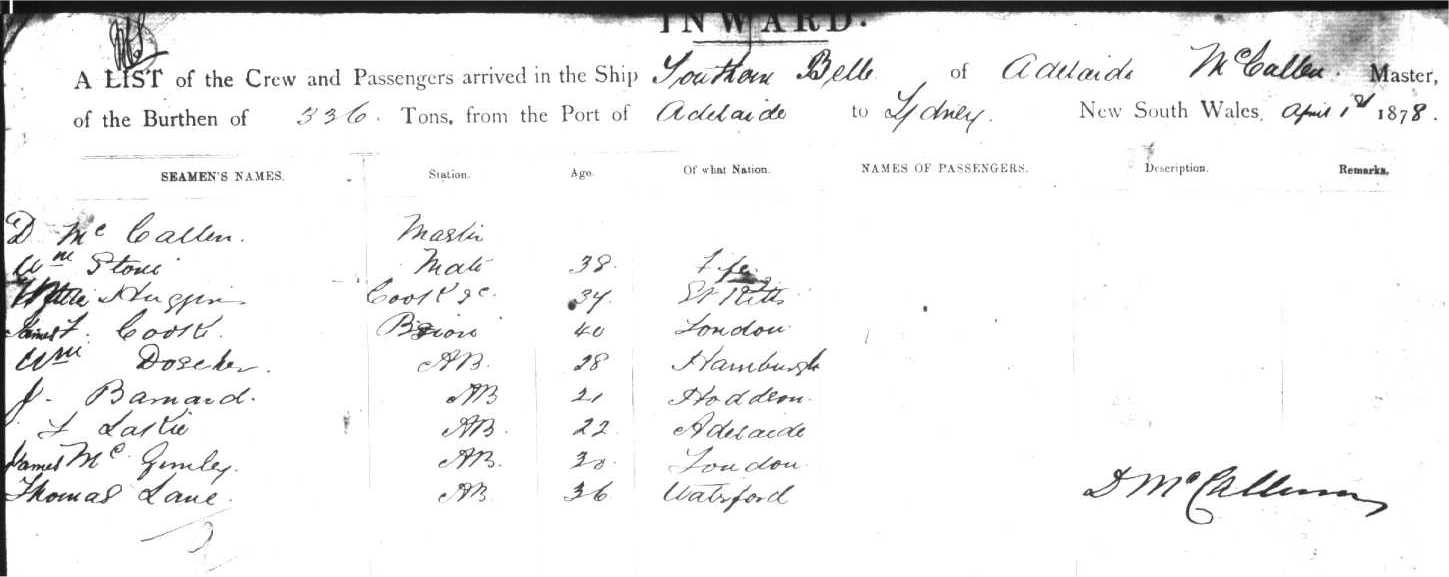 INWARD.
A LIST of the Crew and Passengers arrived in the Ship Southern Belle of Adelaide McCallen. Master,
of the Burthen of 336. Tons, from the Port of Adelaide to Sydney. New South Wales, April 1st 1878.
SEAMEN'S NAMES. Station. Age. Of what Nation. NAMES OF PASSENGERS. Description. Remarks.
D McCallen. Master
Wm Stone Mate 38 Fife
Huggins Cook &c. 34 St Kitts
James F. Cook. 40 London
Wm Doscher. AB. 28 Hamburgh
J. Barnard. AB 21
F Laskie AB. 22 Adelaide
James McGinley. AB. 30 London
Thomas Lane. AB 36 Waterford
D McCallum